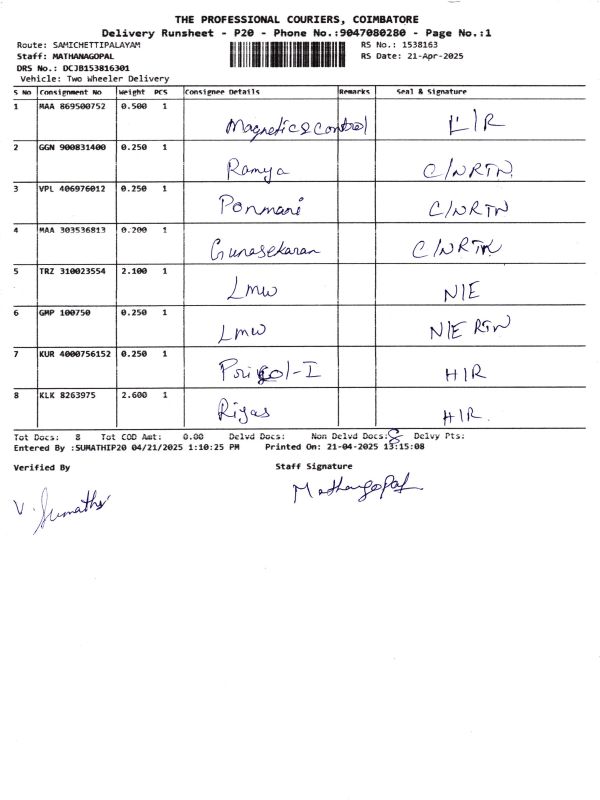 THE PROFESSIONAL COURIERS, COIMBATORE
Delivery Runsheet - P20 - Phone No.:9047080280 - Page No.:1
Route: SAMICHETTIPALAYAM RS No.: 1538163
Staff: MATHANAGOPAL RS Date: 21-Apr-2025
DRS No.: DCJB153816301
Vehicle: Two Wheeler Delivery
S No Consignment No Weight PCS Consignee Details Remarks Seal & Signature
1 MAA 869500752 0.500 1 Magnetics Control L/R
2 GGN 900831400 0.250 1 Ramya C/NRTN
3 VPL 406976012 0.250 1 Ponmani C/NRTN
4 MAA 303536813 0.200 1 Gunasekaran C/NRTN
5 TRZ 310023554 2.100 1 Lmw N/E
6 GMP 100750 0.250 1 Lmw N/E RTN
7 KUR 4000756152 0.250 1 Pricol-I H/R
8 KLK 8263975 2.600 1 Riyas H/R.
Tot Docs: 8 Tot COD Amt: 0.00 Delvd Docs: Non Delvd Docs: 8 Delvy Pts:
Entered By :SUMATHIP20 04/21/2025 1:10:25 PM Printed On: 21-04-2025 13:15:08
Verified By Staff Signature
V. Sumathi Mathangopal